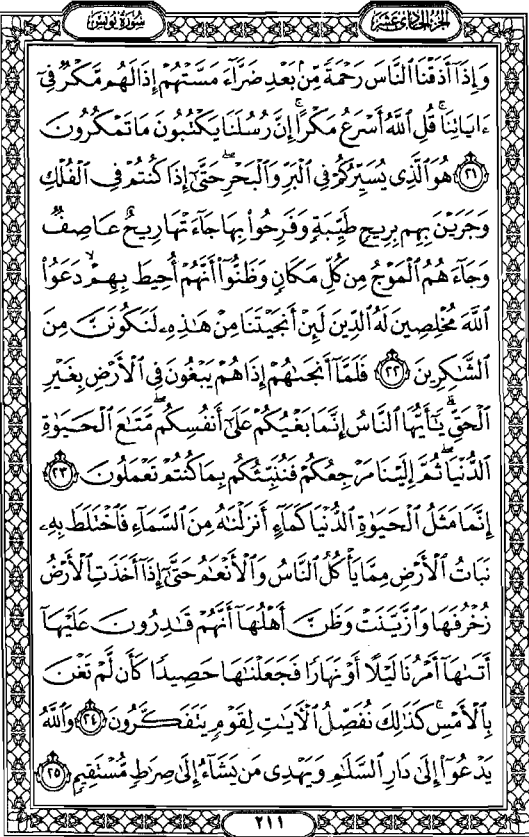 الجزء الحادي عشر
سورة يونس
وَإِذَآ أَذَقْنَا ٱلنَّاسَ رَحْمَةً مِّنۢ بَعْدِ ضَرَّآءَ مَسَّتْهُمْ إِذَا لَهُم مَّكْرٌ فِىٓ
ءَايَاتِنَا ۚ قُلِ ٱللَّهُ أَسْرَعُ مَكْرًا ۚ إِنَّ رُسُلَنَا يَكْتُبُونَ مَا تَمْكُرُونَ
٢١ هُوَ ٱلَّذِى يُسَيِّرُكُمْ فِى ٱلْبَرِّ وَٱلْبَحْرِ ۖ حَتَّىٰٓ إِذَا كُنتُمْ فِى ٱلْفُلْكِ
وَجَرَيْنَ بِهِم بِرِيحٍ طَيِّبَةٍ وَفَرِحُوا۟ بِهَا جَآءَتْهَا رِيحٌ عَاصِفٌ
وَجَآءَهُمُ ٱلْمَوْجُ مِن كُلِّ مَكَانٍ وَظَنُّوٓا۟ أَنَّهُمْ أُحِيطَ بِهِمْ ۙ دَعَوُا۟
ٱللَّهَ مُخْلِصِينَ لَهُ ٱلدِّينَ لَئِنْ أَنجَيْتَنَا مِنْ هَٰذِهِۦ لَنَكُونَنَّ مِنَ
ٱلشَّٰكِرِينَ ٢٢ فَلَمَّآ أَنجَىٰهُمْ إِذَا هُمْ يَبْغُونَ فِى ٱلْأَرْضِ بِغَيْرِ
ٱلْحَقِّ ۗ يَٰٓأَيُّهَا ٱلنَّاسُ إِنَّمَا بَغْيُكُمْ عَلَىٰٓ أَنفُسِكُم ۖ مَّتَٰعَ ٱلْحَيَوٰةِ
ٱلدُّنْيَا ۖ ثُمَّ إِلَيْنَا مَرْجِعُكُمْ فَنُنَبِّئُكُم بِمَا كُنتُمْ تَعْمَلُونَ ٢٣
إِنَّمَا مَثَلُ ٱلْحَيَوٰةِ ٱلدُّنْيَا كَمَآءٍ أَنزَلْنَٰهُ مِنَ ٱلسَّمَآءِ فَٱخْتَلَطَ بِهِۦ
نَبَاتُ ٱلْأَرْضِ مِمَّا يَأْكُلُ ٱلنَّاسُ وَٱلْأَنْعَٰمُ حَتَّىٰٓ إِذَآ أَخَذَتِ ٱلْأَرْضُ
زُخْرُفَهَا وَٱزَّيَّنَتْ وَظَنَّ أَهْلُهَآ أَنَّهُمْ قَٰدِرُونَ عَلَيْهَآ
أَتَىٰهَآ أَمْرُنَا لَيْلًا أَوْ نَهَارًا فَجَعَلْنَٰهَا حَصِيدًا كَأَن لَّمْ تَغْنَ
بِٱلْأَمْسِ ۚ كَذَٰلِكَ نُفَصِّلُ ٱلْأَيَٰتِ لِقَوْمٍ يَتَفَكَّرُونَ ٢٤ وَٱللَّهُ
يَدْعُوٓا۟ إِلَىٰ دَارِ ٱلسَّلَٰمِ وَيَهْدِى مَن يَشَآءُ إِلَىٰ صِرَٰطٍ مُّسْتَقِيمٍ ٢٥
٢١١